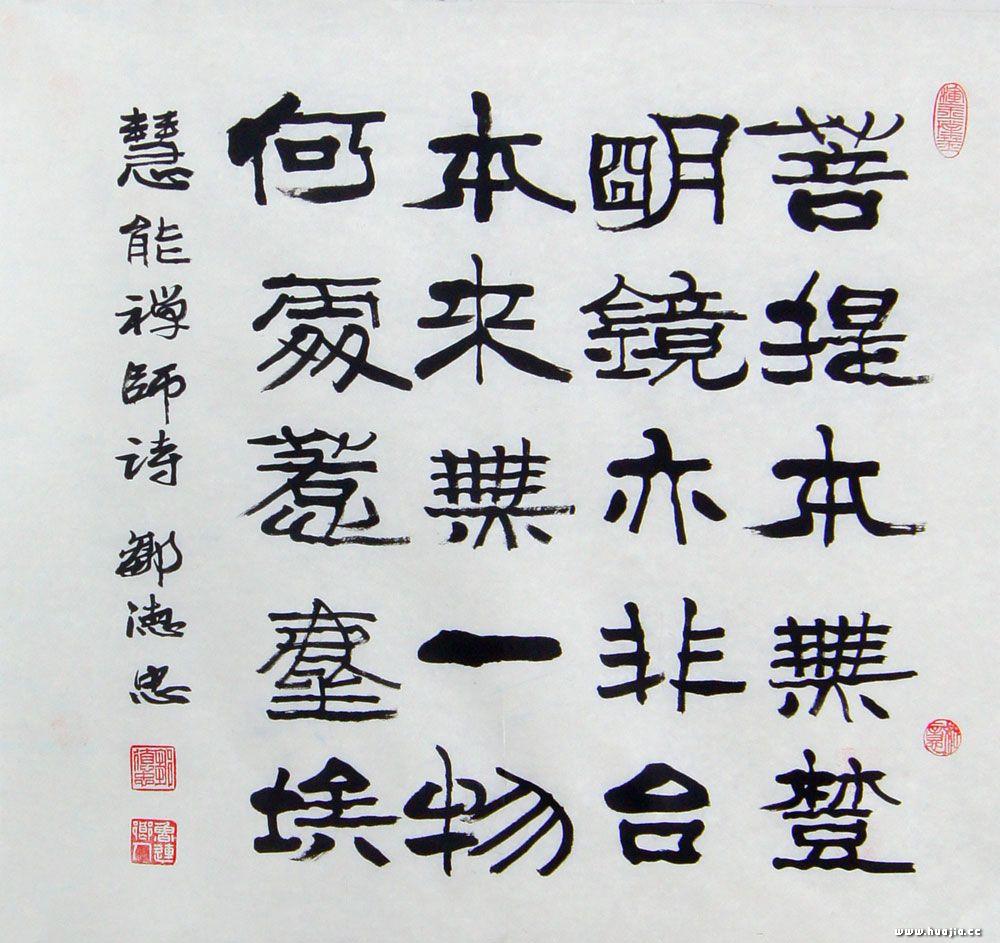 菩提本無樹
明鏡亦非台
本来無一物
何處惹塵埃
慧能禅師诗 鄒德忠
魯連鄉人
www.huajia.cc